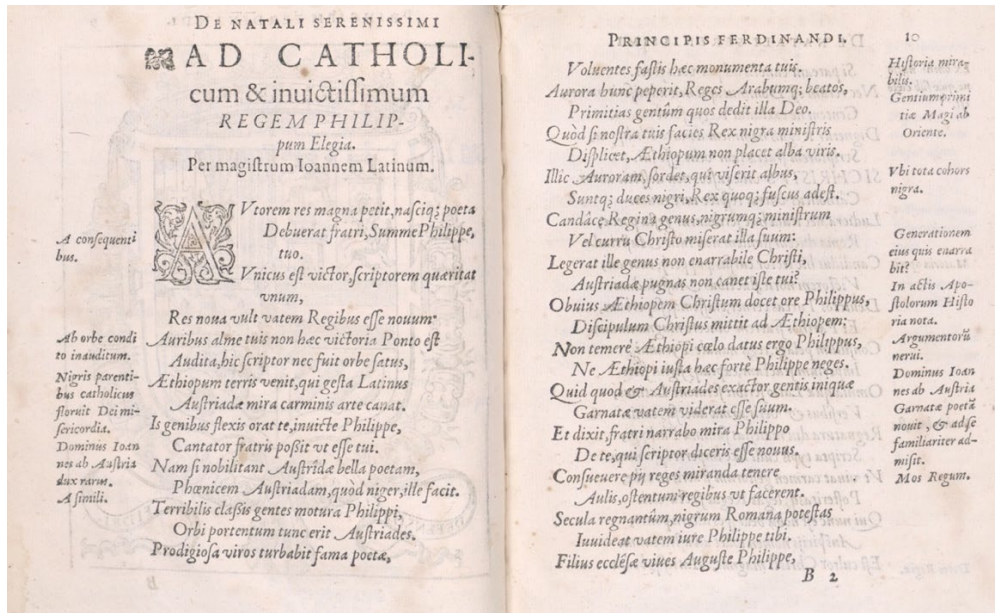 DE NATALI SERENISSIMI
AD CATHOLI-
cum & inuictissimum
REGEM PHILIP-
pum Elegia.
Per magistrum Ioannem Latinum.
AVtorem res magna petit, nasciq; poeta
Debuerat fratri, Summe Philippe,
tuo.
Vnicus est victor, scriptorem quæritat
vnum,
Res noua vult vatem Regibus esse nouum·
Auribus alme tuis non hæc victoria Ponto est
Audita, hic scriptor nec fuit orbe satus,
Æthiopum terris venit, qui gesta Latinus
Austriadæ mira carminis arte canat.
Is genibus flexis orat te, inuicte Philippe,
Cantator fratris possit vt esse tui.
Nam si nobilitant Austridæ bella poetam,
Phœnicem Austriadam, quòd niger, ille facit.
Terribilis classis gentes motura Philippi,
Orbi portentum tunc erit Austriades.
Prodigiosa viros turbabit fama poetæ,
A consequenti
bus.
Ab orbe condi
to inauditum.
Nigris parenti-
bus catholicus
floruit Dei mi-
sericordia.
Dominus Ioan
nes ab Austria
dux rarus.
A simili.
PRINCIPIS FERDINANDI.
10
Voluentes fastis hæc monumenta tuis.
Aurora hunc peperit, Reges Arabumq; beatos,
Primitias gentûm quos dedit illa Deo.
Quòd si nostra tuis facies Rex nigra ministris
Displicet, Æthiopum non placet alba viris.
Illic Auroram sordet, qui viserit albus,
Suntq; duces nigri, Rex quoq; fuscus adest.
Candace Regina genus, nigrumq; ministrum
Vel curru Christo miserat illa suum:
Legerat ille genus non enarrabile Christi,
Austriadæ pugnas non canet iste tui?
Obuius Æthiopem Christum docet ore Philippus,
Discipulum Christus mittit ad Æthiopem:
Non temerè Æthiopi cœlo datus ergo Philippus,
Ne Æthiopi iusta hæc fortè Philippe neges.
Quid quod & Austriades exactor gentis iniquæ
Garnatæ vatem viderat esse suum.
Et dixit, fratri narrabo mira Philippo
De te, qui scriptor diceris esse nouus.
Consueuere pij reges miranda tenere
Aulis, ostentum regibus vt facerent.
Secula regnantûm, nigrum Romana potestas
Inuideat vatem iure Philippe tibi,
Filius ecclésæ viues Auguste Philippe,
B 2
Historia mira-
bilis.
Gentium primi
tiæ Magi ab
Oriente.
Vbi tota cohors
nigra.
Generationem
eius quis enarra
bit?
In actis Apo-
stolorum Histo
ria nota.
Argumentorũ
nerui.
Dominus Ioan
nes ab Austria
Garnatæ poetã
nouit, & ad se
familiariter ad-
misit.
Mos Regum.